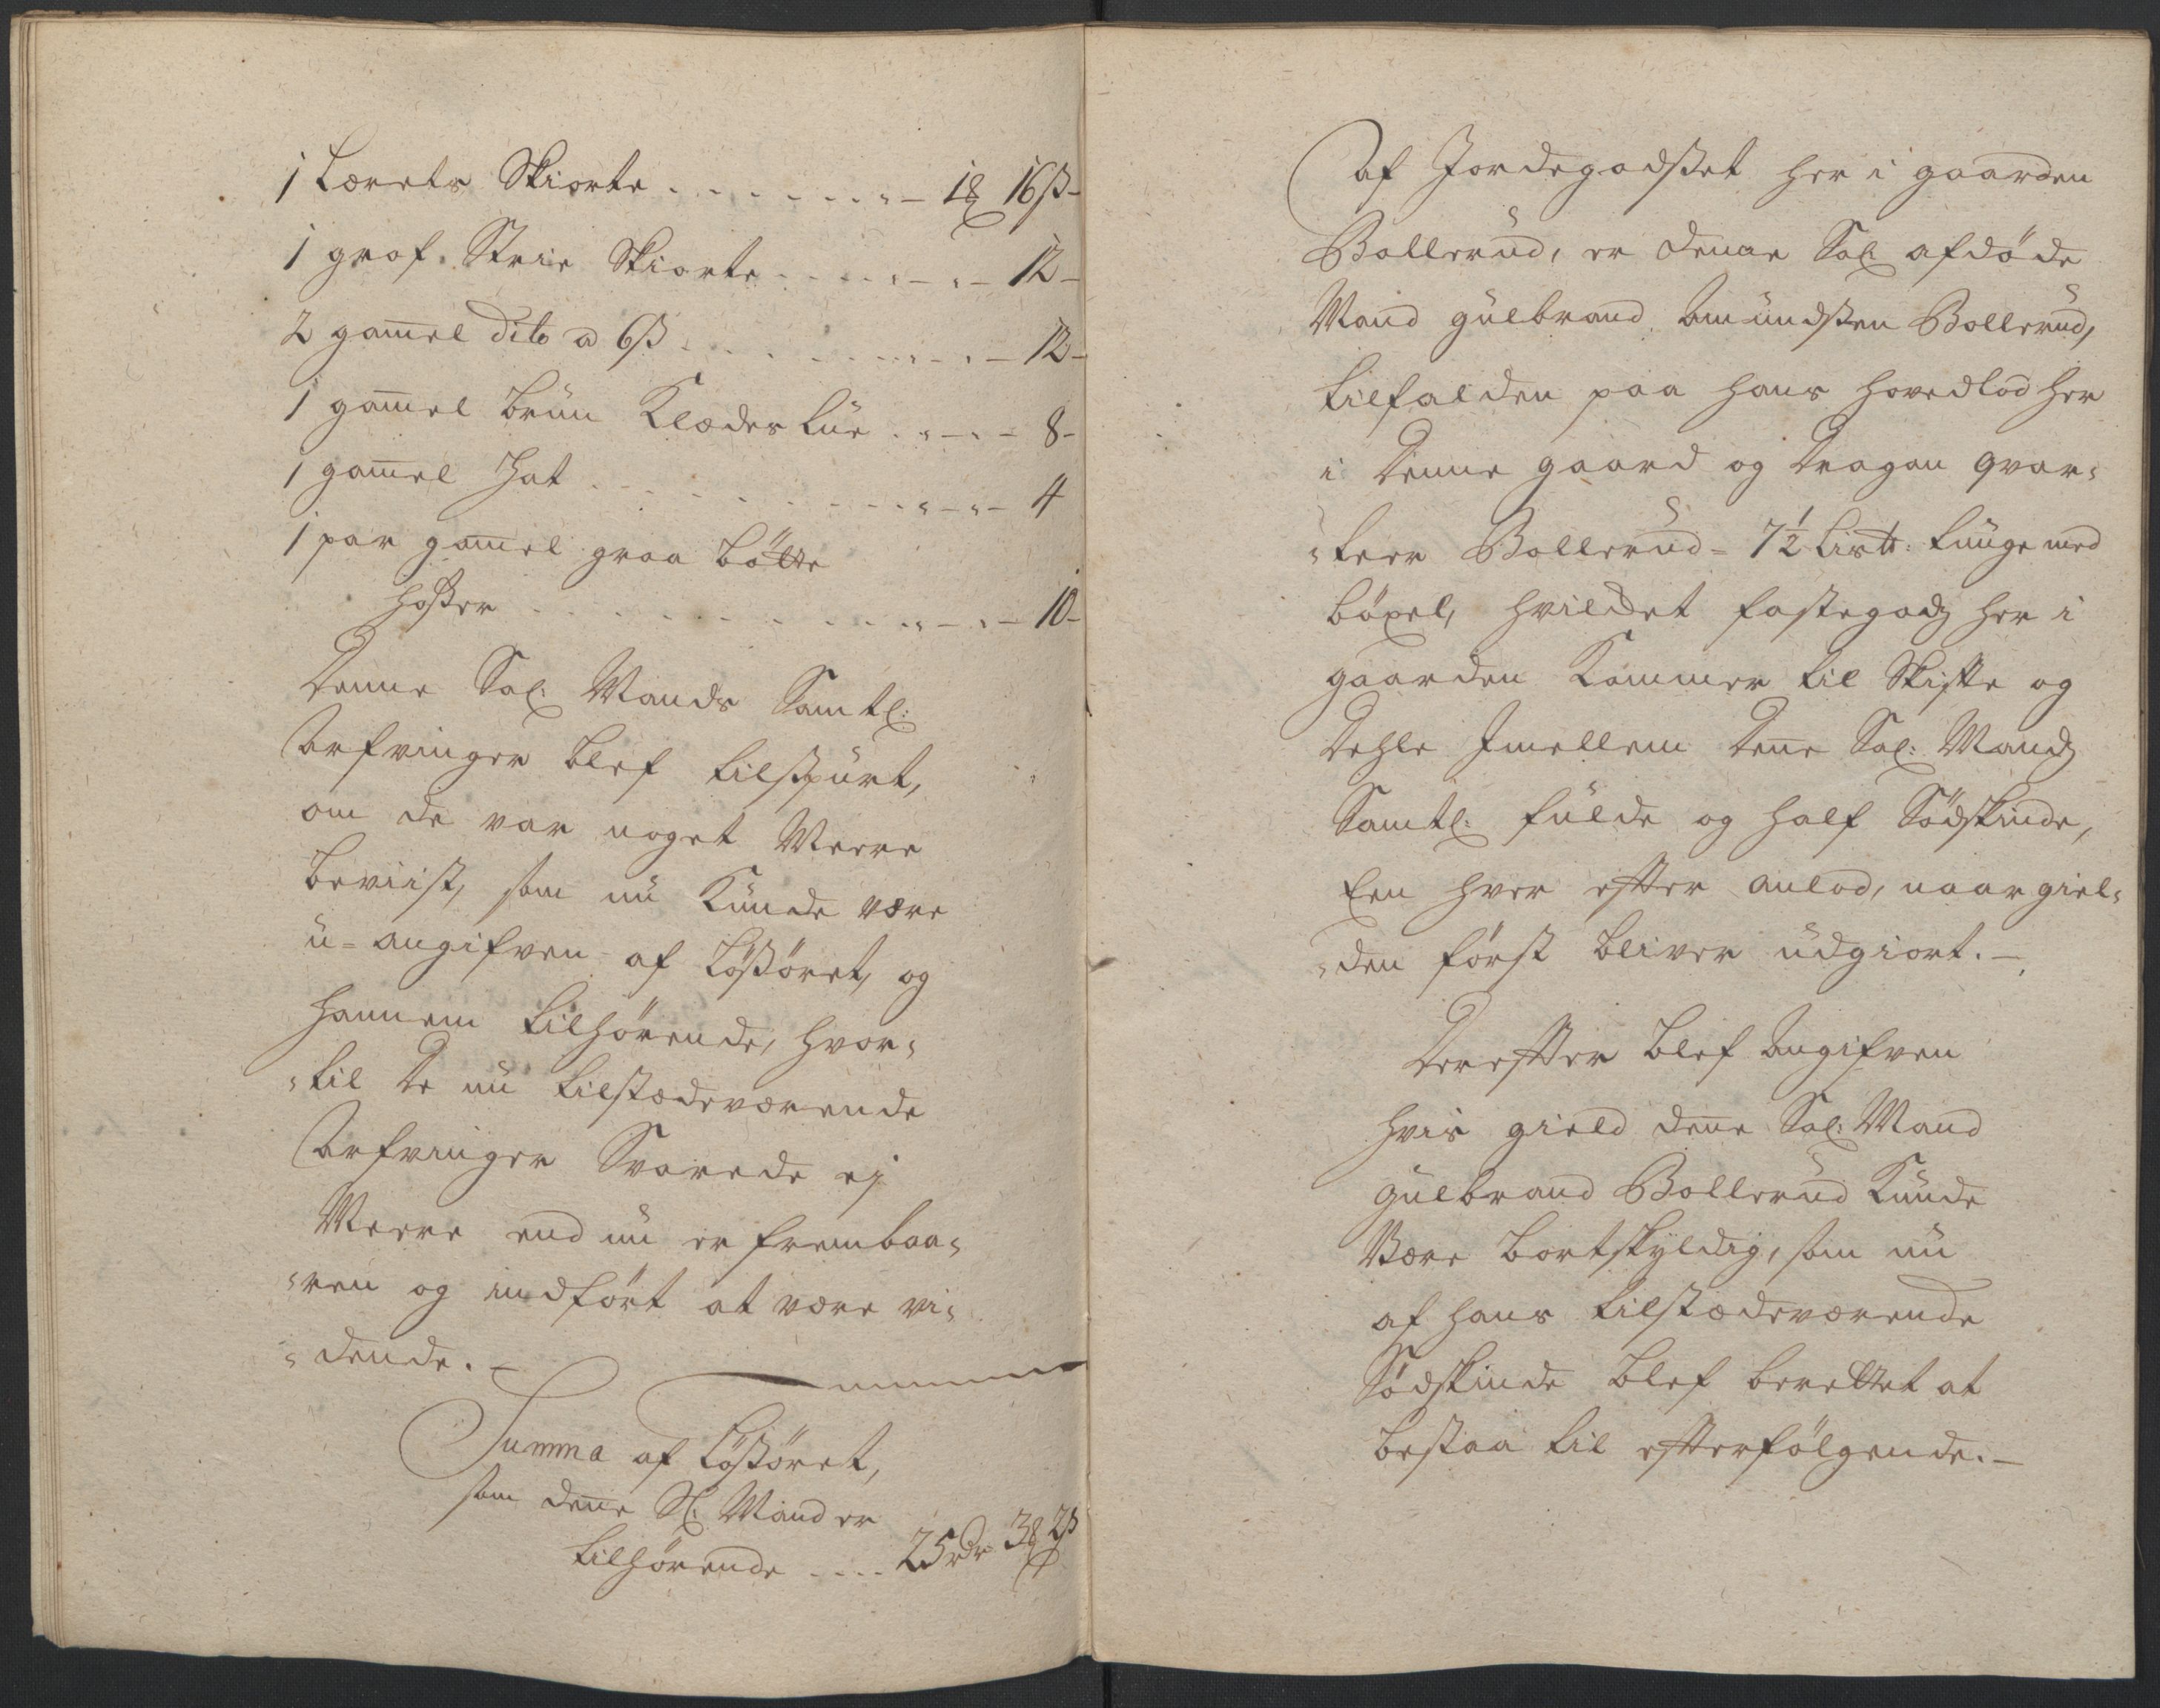 1 Lærets Skiorte . . . . . . . - 1 16 ß -
1 grof Strie Skiorte . . . . . - 12 -
2 gam̄el dito a 6 ß . . . . . . - 12 -
1 gam̄el brun Klædes Lue . . - 8 -
1 gam̄el Hat . . . . . . . . - 4
1 par gam̄el graa bötte
Hoßer . . . . . . . . . . - 10 -
Denne Sal: Mands Samtl:
Arfvinger blef tilspurt,
om de var noget Meere
beviist, som nu kunde være
u-angifven af Lößöret, og
hannem tilhörende, hvor-
-til De nu tilstædeværende
Arfvinger Svarede ej
Meere end nu er frembaa-
-ren og indfört at være vi-
-dende. -
Summa af Lößöret,
som deñe Sl: Mand er
tilhörende . . . . 25 rdr 3 2 ß
Af Jordegodßet her i gaarden
Bollerud, er denne Sal: afdöde
Mand Gulbrand Amundßen Bollerud,
tilfalden paa hans hovedlod her
i Denne gaard og Dragon qvar-
-teer Bollerud = 7½ Lis℔: Tunge med
böxel, hvilcket fastegods her i
gaarden Kommer til Skifte og
Dehle Imellem Deñe Sal: Mands
Samtl: fulde og half Södskinde,
Een hver efter anlod, naar giel-
-den först bliver udgiort. -
Derefter blef Angifven
hvis gield deñe Sal: Mand
Gulbrand Bollerud kunde
Være bortskyldig, som nu
af hans tilstædeværende
Södskinde blef berettet at
bestaa til efterfölgende. -